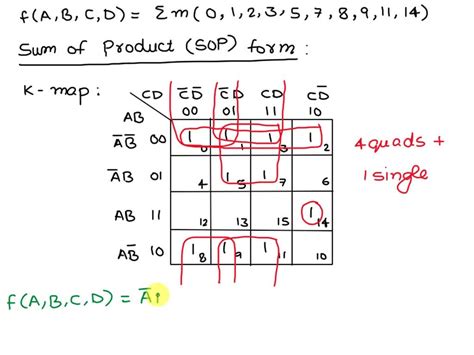 f(A,B,C,D) = Σm(0,1,2,3,5,7,8,9,11,14)
Sum of Product (SOP) form :
K-map :
CD C̅D̅ C̅D CD CD̅
AB 00 01 11 10
A̅B̅ 00 1 0 1 1 1 3 1 2
A̅B 01 4 1 5 1 7 6
AB 11 12 13 15 1 14
AB̅ 10 1 8 1 9 1 11 10
4 quads +
1 single
f(A,B,C,D) = A̅